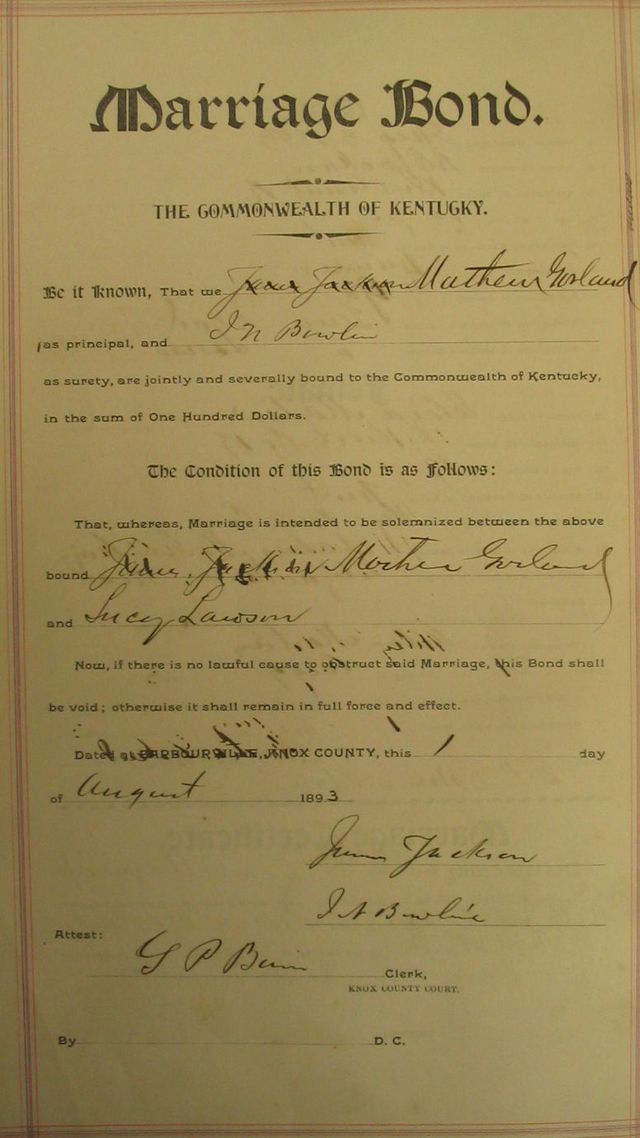 Marriage Bond.
THE COMMONWEALTH OF KENTUCKY.
Be it Known, That we James Jackson Mathew Gorland
as principal, and I N Bowlin
as surety, are jointly and severally bound to the Commonwealth of Kentucky,
in the sum of One Hundred Dollars.
The Condition of this Bond is as Follows:
That, whereas, Marriage is intended to be solemnized between the above
bound James Jackson Mathew Gorland
and Lucy Lawson
Now, if there is no lawful cause to obstruct said Marriage, this Bond shall
be void; otherwise it shall remain in full force and effect.
Dated at BARBOURVILLE, KNOX COUNTY, this 1 day
of August 1893
James Jackson
I N Bowlin
Attest:
G P Clerk,
KNOX COUNTY COURT.
By D. C.